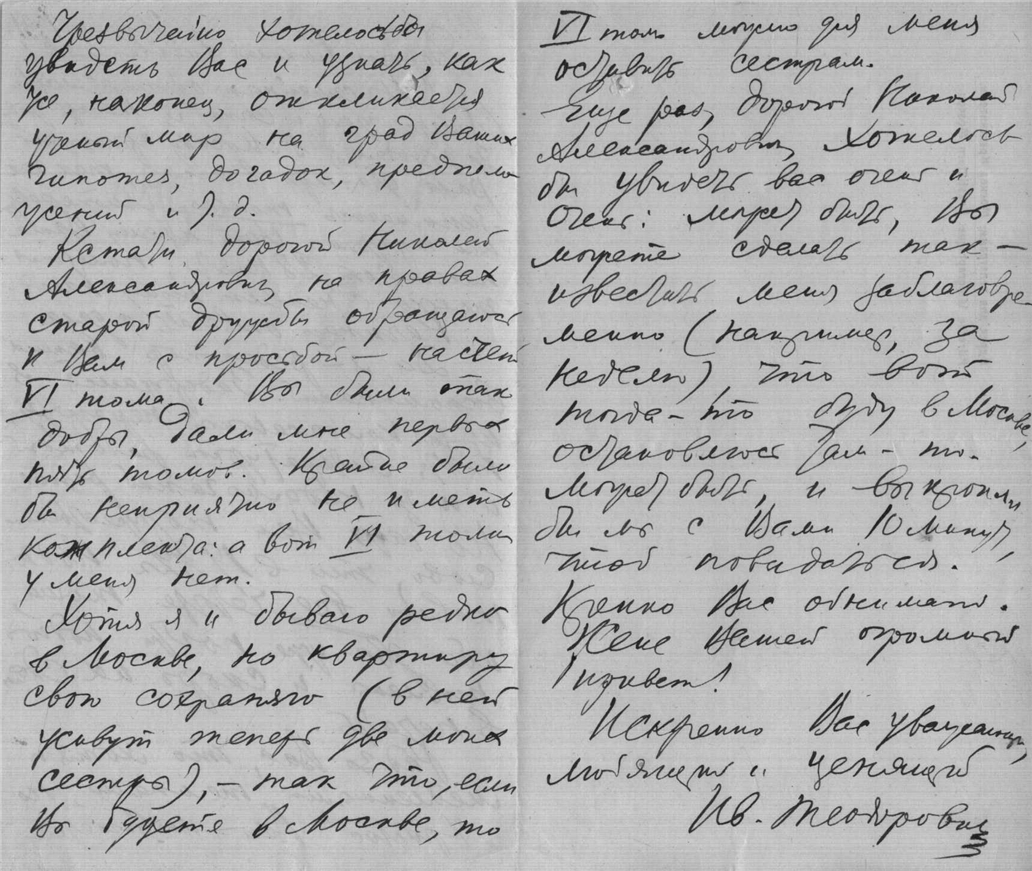 Чрезвычайно хотелось бы
увидеть Вас и узнать, как
же, наконец, откликается
ученый мир на град Ваших
гипотез, догадок, предполо
жений и т. д.
Кстати, дорогой Николай
Александрович, на правах
старой дружбы обращаюсь
к Вам с просьбой — насчет
VI тома. Вы были так
добры, дали мне первых
пять томов. Крайне было
бы неприятно не иметь
комплекта: а вот VI тома
у меня нет.
Хотя я и бываю редко
в Москве, но квартиру
свою сохраняю (в ней
живут теперь две моих
сестры), — так что, если
Вы будете в Москве, то
VI том можно для меня
оставить сестрам.
Еще раз, дорогой Николай
Александрович, хотелось
бы увидеть вас очень и
очень: может быть, Вы
можете сделать так —
известить меня заблаговре-
менно (например, за
неделю), что вот
тогда-то буду в Москве,
остановлюсь там-то.
Может быть, и выкроили
бы мы с Вами 10 минут,
чтоб повидаться.
Крепко Вас обнимаю.
Жене Вашей огромный
привет!
Искренно Вас уважающий,
любящий и ценящий
Ив. Теодорович